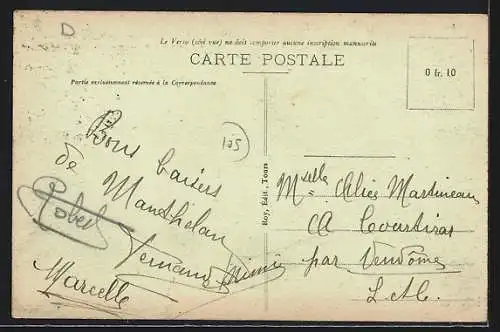 D
Le Verso (côté vue) ne doit comporter aucune inscription manuscrite
CARTE POSTALE
Partie exclusivement réservée à la Correspondance
0 fr. 10
105
Bons baisers
de Manthelan
Robert
Fernand Mimi
Marcelle
Roy, Edit., Tours
Mselle Alice Martineau
A Courtiras
par Vendôme
L. &